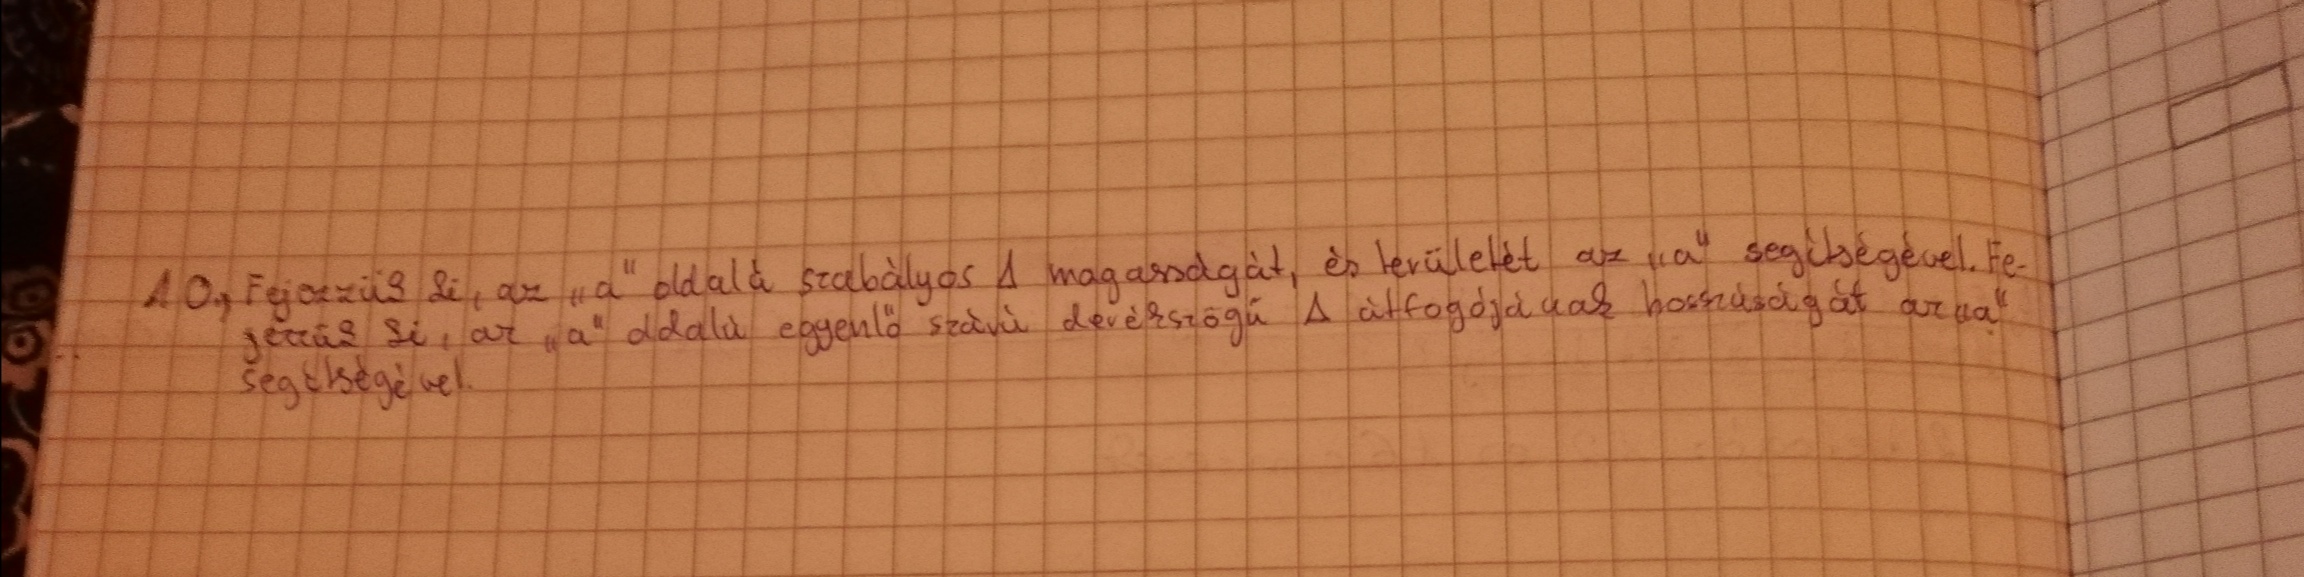 10, Fejezzük ki, az „a" oldalú szabályos Δ magasságát, és területét az „a" segítségével. Fe-
jezzük ki, az „a" oldalú egyenlő szárú derékszögű Δ átfogójának hosszúságát az „a"
segítségével.